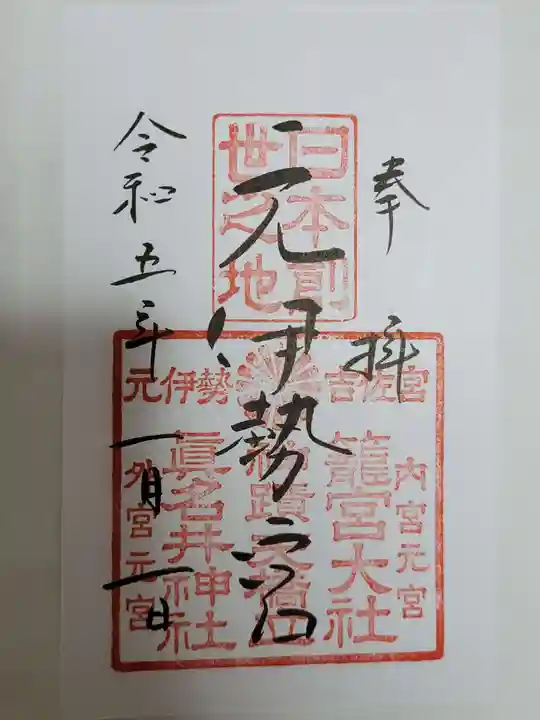 奉拝
日本創
世之地
元伊勢宮
吉佐宮
元伊勢
内宮元宮
籠宮大社
眞名井神社
外宮元宮
令和五年一月一日